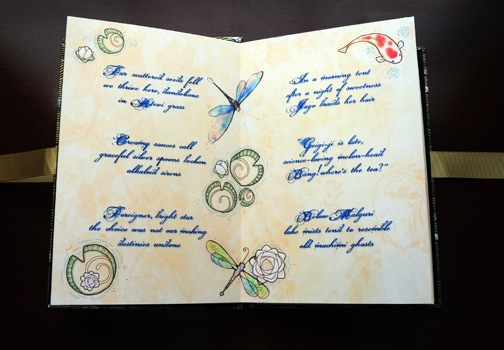 Far scattered seeds fall
we thrive here, dandelions
in Mosi grass
Creamy sauces call
graceful silver spoons beckon
alkaloid sirens
Foreigner, bright star
the choice was not our making
destinies undone
In a morning tent
after a night of sweetness
Jago braids her hair
Gaigi-ji is late,
science-loving melon-head
"Bang! where's the tea?"
Below Malguri
lake mists tend to resemble
old machimi ghosts